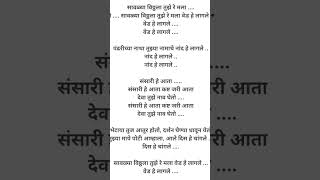 सावळ्या विठ्ठला तुझे रे मला ....
.... सावळ्या विठ्ठला तुझे रे मला वेड हे लागले
वेड हे लागले ....
वेड हे लागले ....
पंढरीच्या नाथा तुझ्या नामाचे नांद हे लागले ..
नांद हे लागले ..
नांद हे लागले ..
संसारी हे आता .....
संसारी हे आता कष्ट जरी आता
देवा तुझे नाव घेतो ....
संसारी हे आता कष्ट जरी आता
देवा तुझे नाव घेतो ....
भेटाया तुज आतुर होतो, दर्शन घेण्या धावून येतो
माघे पोटी आम्हाला, आले दिस हे चांगले
दिस हे चांगले ....
सावळ्या विठ्ठला तुझे रे मला वेड हे लागले ...
वेड हे लागले ....